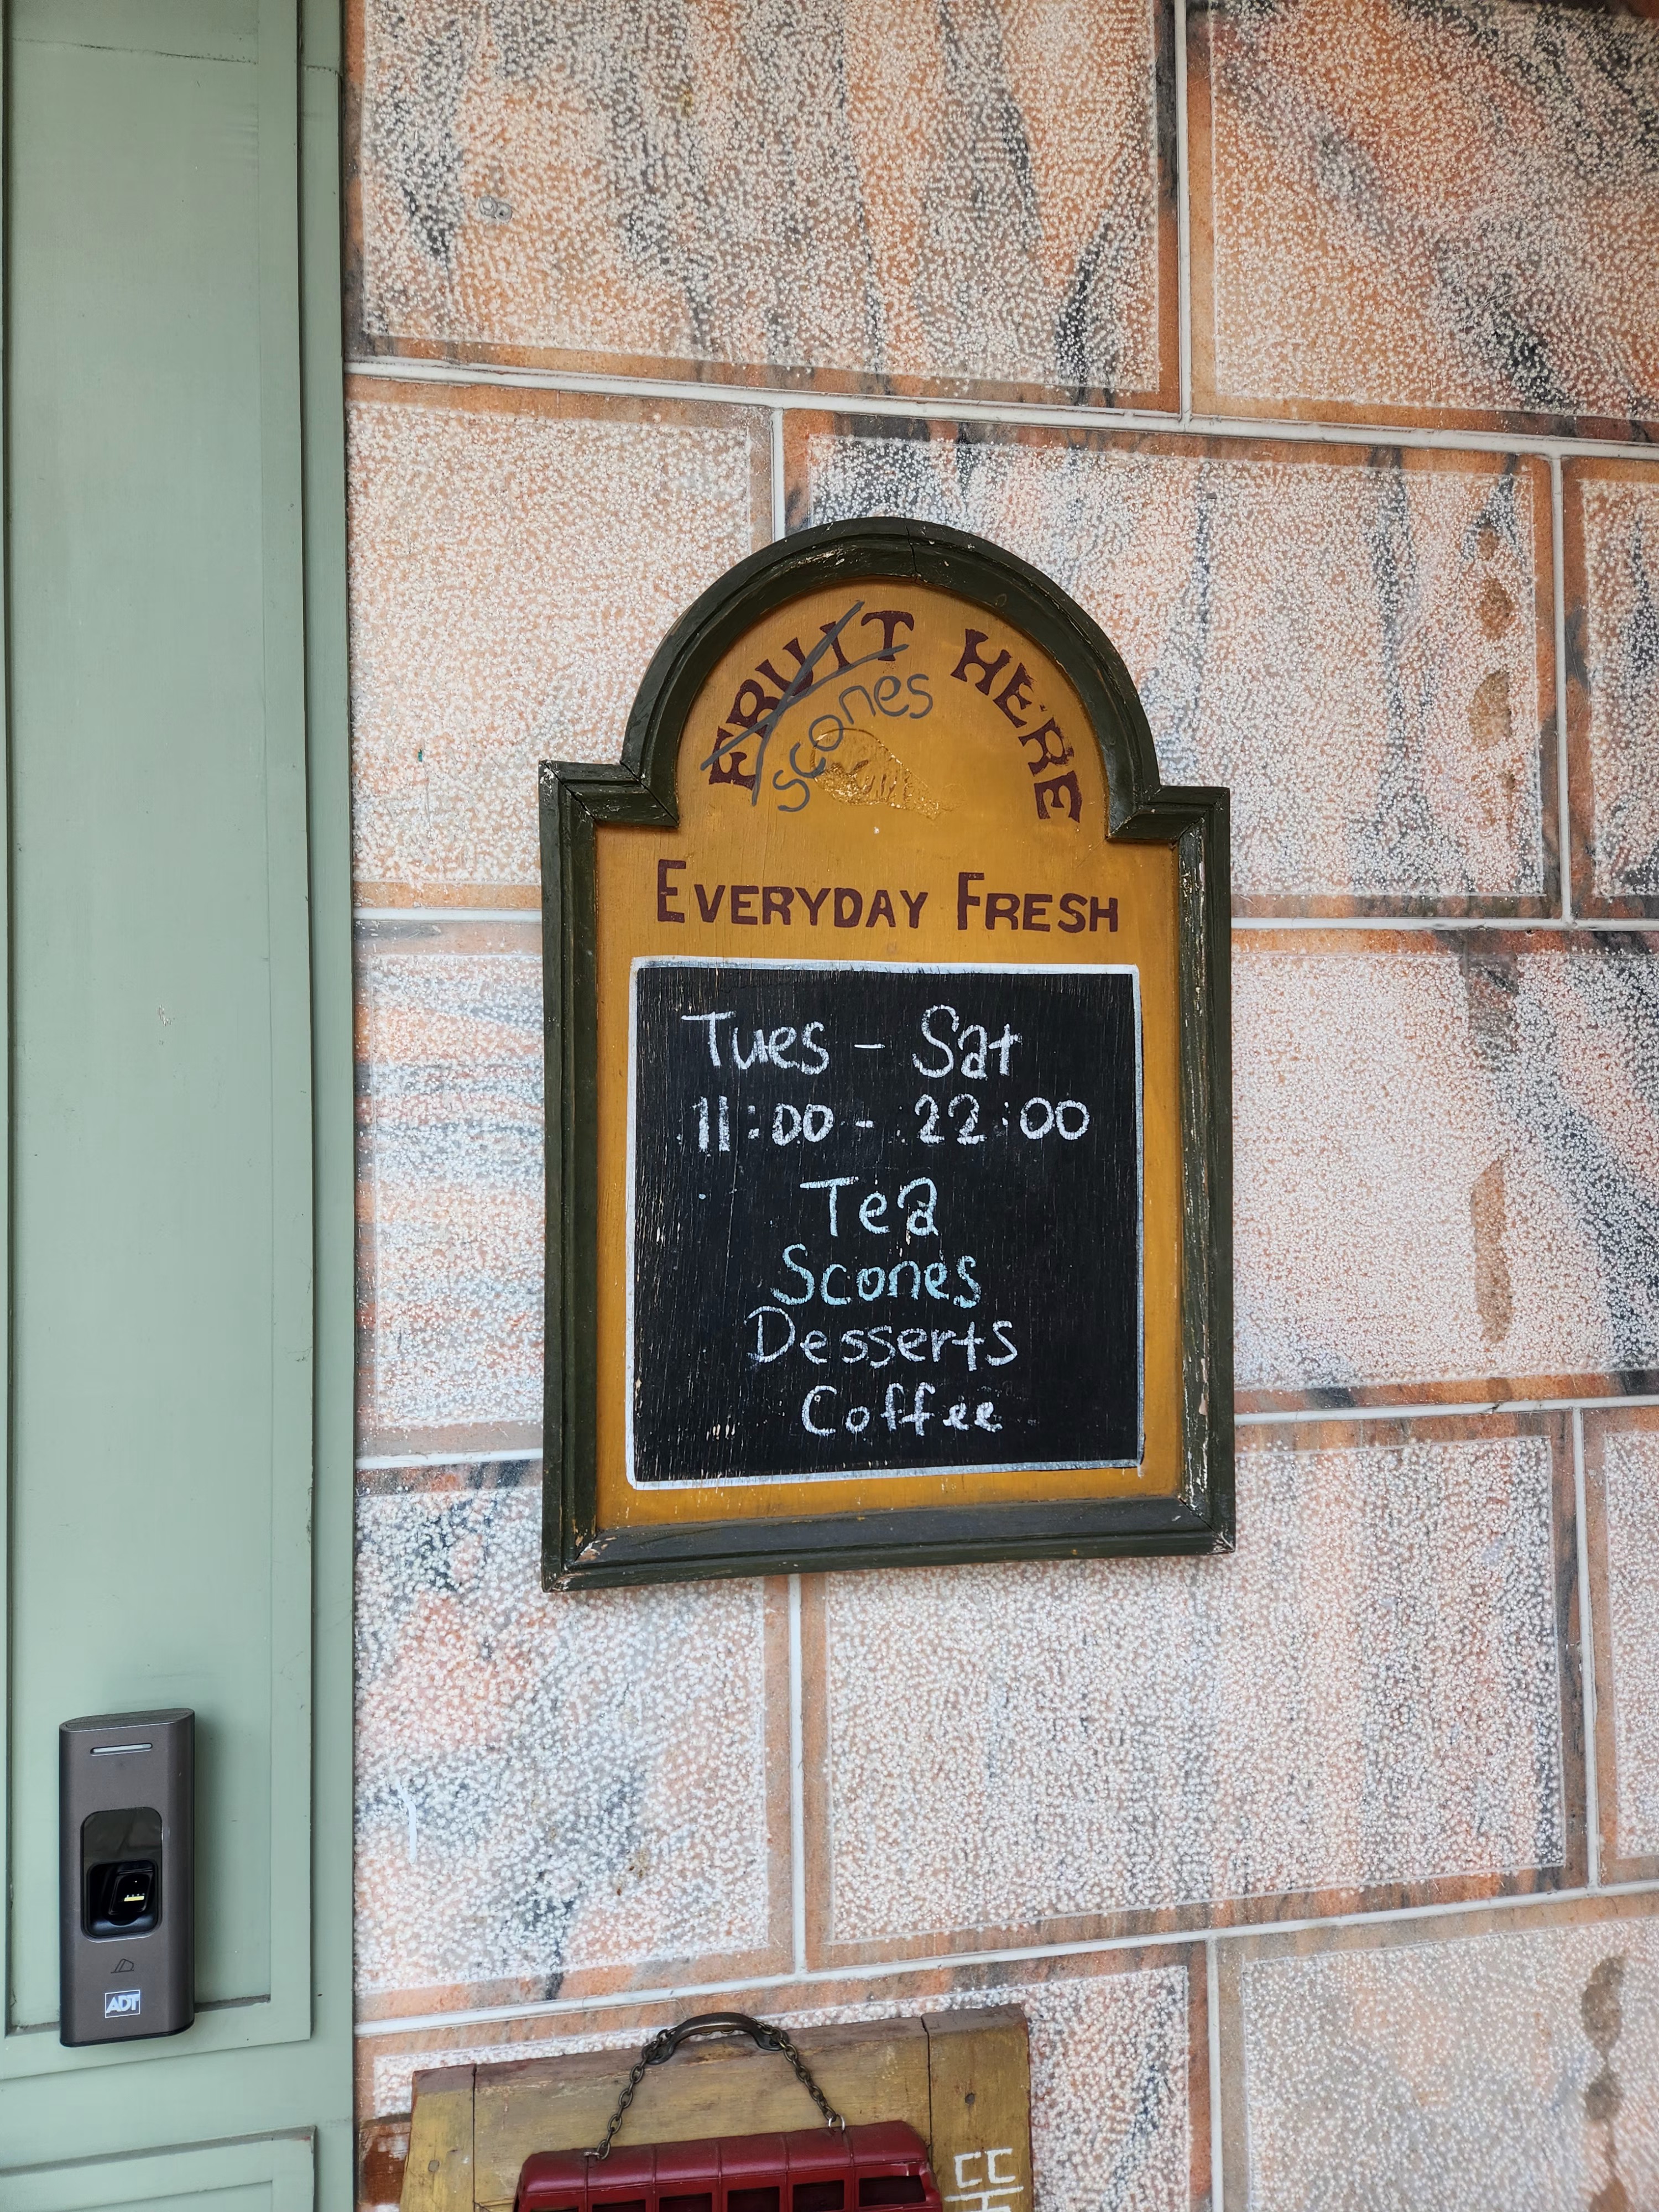 FRUIT HERE
scones
EVERYDAY FRESH
Tues - Sat
11:00 - 22:00
Tea
Scones
Desserts
Coffee
ADT